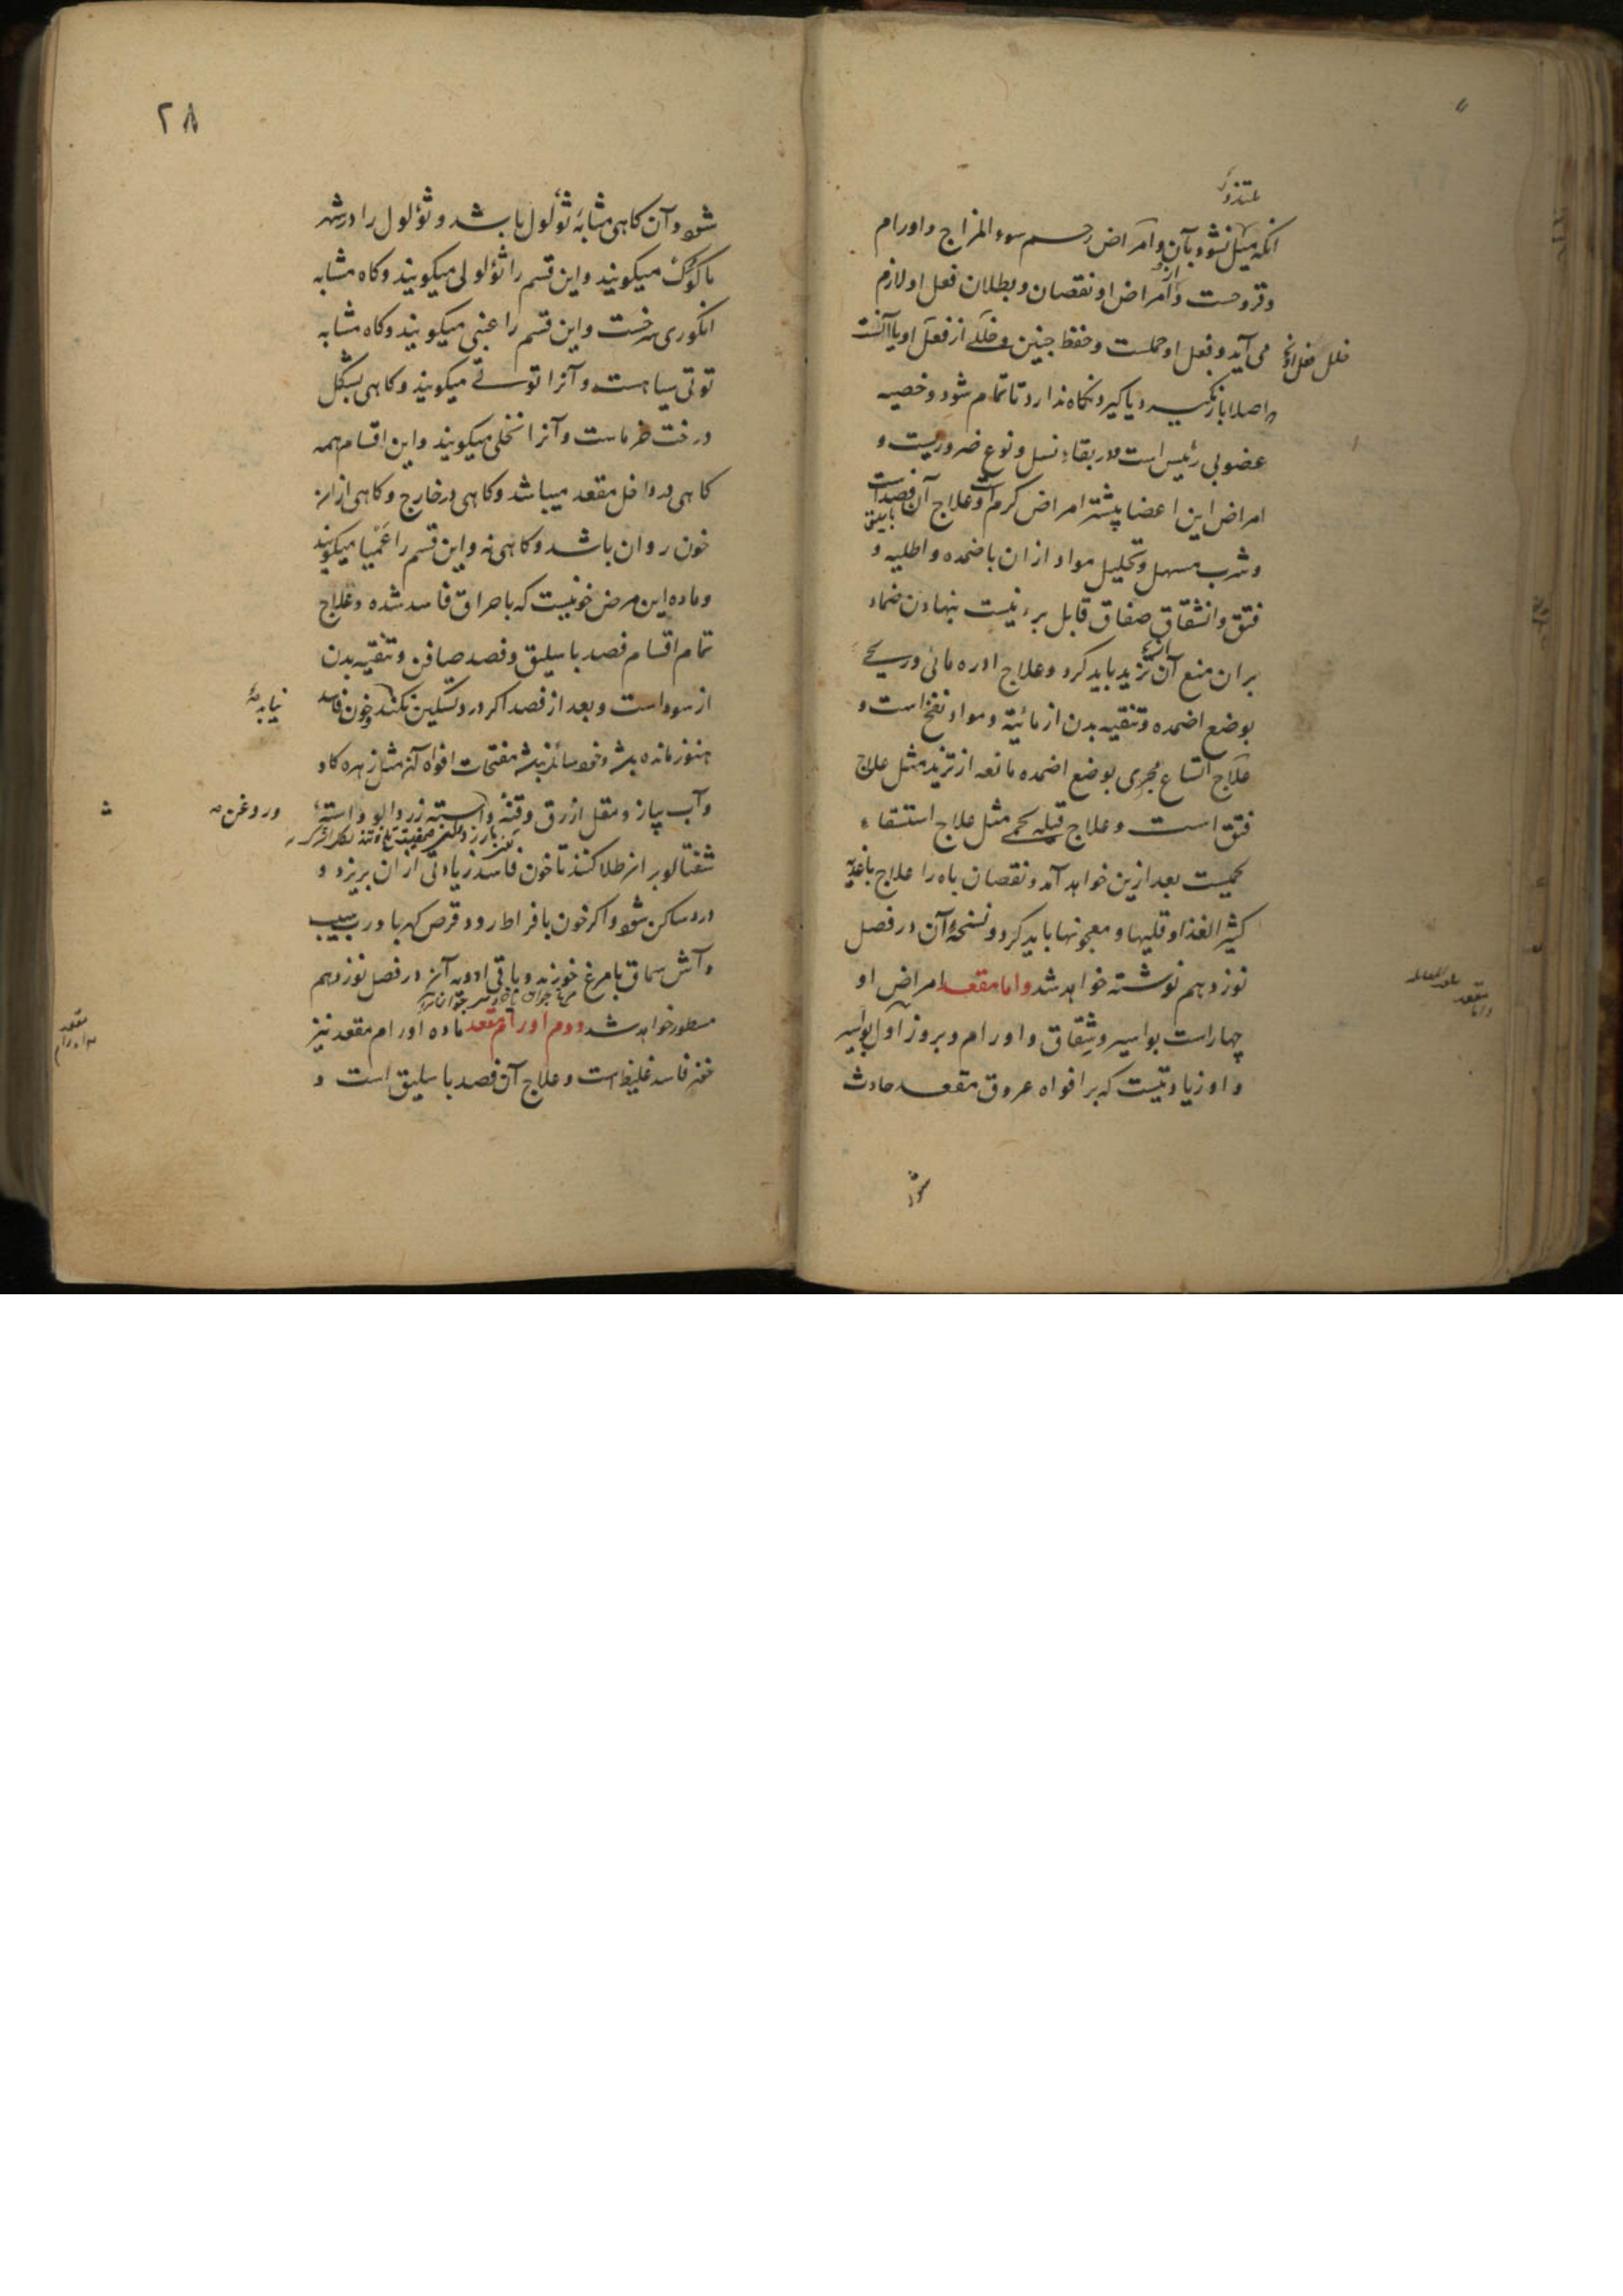 انکه میل نشود بآن و امراض رحم سوء المزاج و اورام
و قروحست و امراض او نقصان و بطلان فعل او لازم
می آید و فعل او حملست و حفظ جنین و خللی از فعل او یا آنست
اصلا باز نکیرد یا کیرد و نکاه ندارد تا تمام شود و خصیه
عضوی رئیس است در بقاء نسل و نوع ضروریست و
امراض این اعضا پیشتر امراض کرم است و علاج آن فصد است
و شرب مسهل و تحلیل مواد از ان باضمده و اطلیه و
فتق و انشقاق صفاق قابل برء نیست بنهادن ضماد
بر ان منع آن تزید باید کرد و علاج ادره مائی و ریحی
بوضع اضمده و تنقیه بدن از مائیة و مواد نفخ است و
علاج اتساع مجری بوضع اضمده مانعه از تزید مثل علاج
فتق است و علاج قیله لحمی مثل علاج استسقاء
لحمیست بعد ازین خواهد آمد و نقصان باه را علاج باغذیه
کثیر الغذا و قلیها و معجونها باید کرد و نسخهٔ آن در فصل
نوزدهم نوشته خواهد شد و اما مقعد امراض او
چهار است بواسیر و شقاق و اورام و بروز اول بواسیر
و او زیادتیست که بر افواه عروق مقعد حادث
شود
واما
مقعد
۲۸
شود و آن کاهی مشابه ثؤلول باشد و ثؤلول را در شهر
ما کوک میکویند و این قسم را ثؤلولی میکویند و کاه مشابه
انکوری سرخست و این قسم را عنبی میکویند و کاه مشابه
توتی سیاهست و آنرا توتی میکویند و کاهی بشکل
درخت خرماست و آنرا نخلی میکویند و این اقسام همه
کاهی در داخل مقعد میباشد و کاهی در خارج و کاهی از ان
خون روان باشد و کاهی نه و این قسم را عمیا میکویند
و ماده این مرض خونیست که باحراق فاسد شده و علاج
تمام اقسام فصد باسلیق و فصد صافن و تنقیه بدن
از سوداست و بعد از فصد اکر درد تسکین نکند و خون فاسد
هنوز مانده باشد مفتحات افواه آن مثل زهره کاو
و آب پیاز و مقل ازرق و قنه و استه زردالو و استه
و روغن
شفتالو بر ان طلا کنند تا خون فاسد زیادتی از ان بریزد و
درد ساکن شود و اکر خون بافراط رود قرص کهربا در رب سیب
و آش سماق با مرغ خورند و باقی ادویه آن در فصل نوزدهم
مسطور خواهد شد دوم اورام مقعد ماده اورام مقعد نیز
خون فاسد غلیظ است و علاج آن فصد باسلیق است و